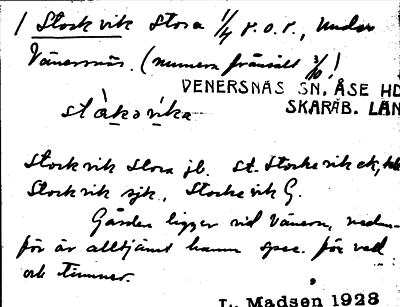 1 Storkvik Stora 1/4 f.o.f., under
Vänersnäs. (numera frånsålt 3/10!
VENERSNÄS SN. ÅSE HD
SKARAB. LÄN
Storkvik Stora jb. St. Storkevik ek,
Storkvik sjk. Storkevik G.
Gården ligger vid Vänern, nedan-
för är alltjämt hamn spec. för ved
och timmer.
L. Madsen 1928